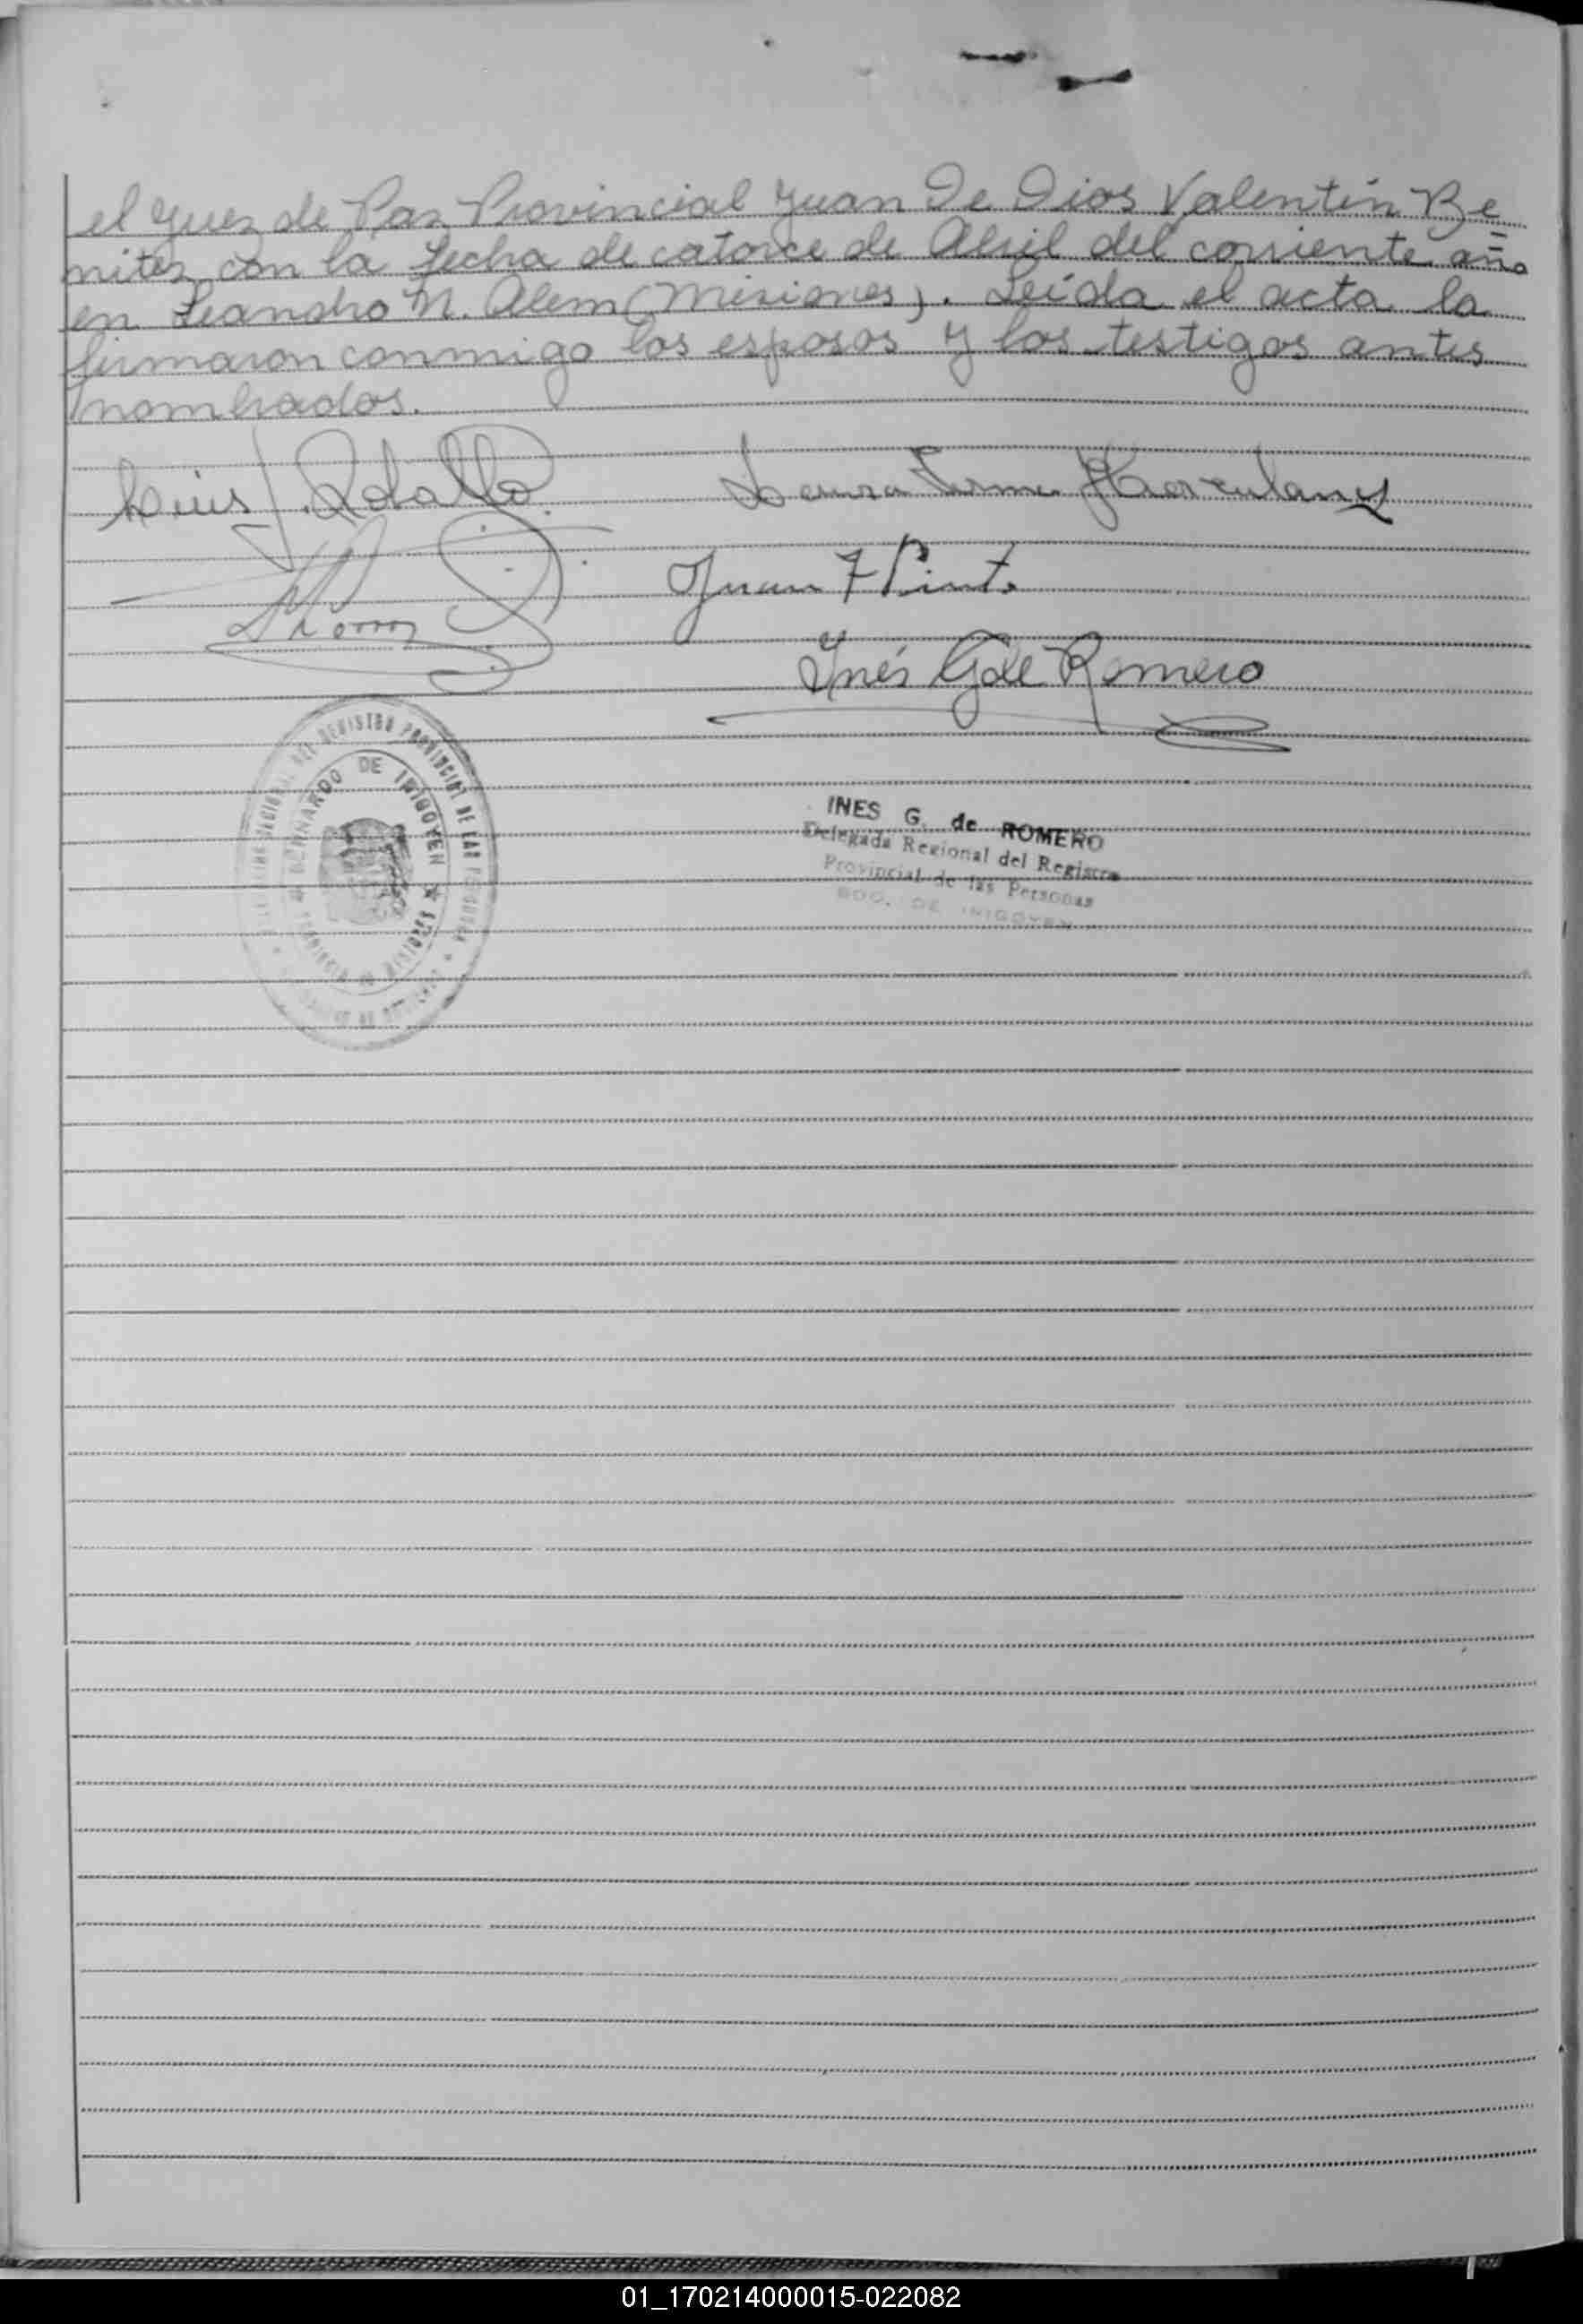 el Juez de Paz Provincial Juan De Dios Valentín Be=
nitez con la fecha de catorce de Abril del corriente año
en Leandro N. Alem (Misiones). Leída el acta la
firmaron conmigo los esposos y los testigos antes
nombrados.
Luis
Juan F Pinto
Inés G de Romero
REGISTRO PROVINCIAL DE LAS PERSONAS
BERNARDO DE IRIGOYEN
PROVINCIA DE MISIONES
INES G. de ROMERO
Delegada Regional del Registro
Provincial de las Personas
BDO. DE IRIGOYEN
01_170214000015-022082